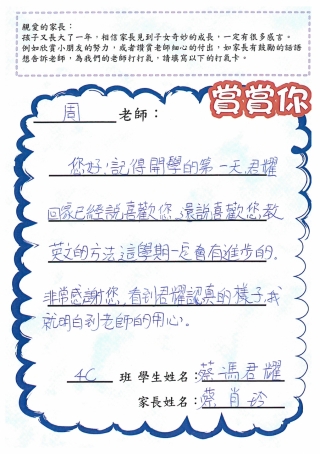 親愛的家長：
孩子又長大了一年，相信家長見到子女奇妙的成長，一定有很多感言。
例如欣賞小朋友的努力，或者讚賞老師細心的付出，如家長有鼓勵的話語
想告訴老師，為我們的老師打打氣，請填寫以下的打氣卡。
賞賞你
周 老師：
您好！記得開學的第一天，君耀
回家已經說喜歡您，還說喜歡您教
英文的方法，這學期一定會有進步的。
非常感謝您，看到君耀認真的樣子，我
就明白到老師的用心。
4C 班 學生姓名：蔡馮君耀
家長姓名：蔡肖玲